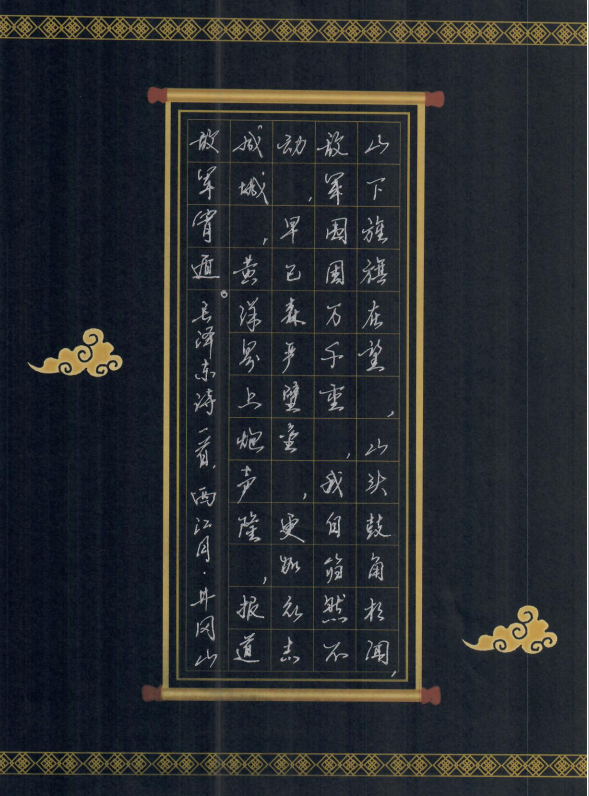 山下旌旗在望,山头鼓角相闻,
敌军围困万千重,我自岿然不
动,早已森严壁垒,更加众志
成城,黄洋界上炮声隆,报道
敌军宵遁。毛泽东诗一首,西江月·井冈山